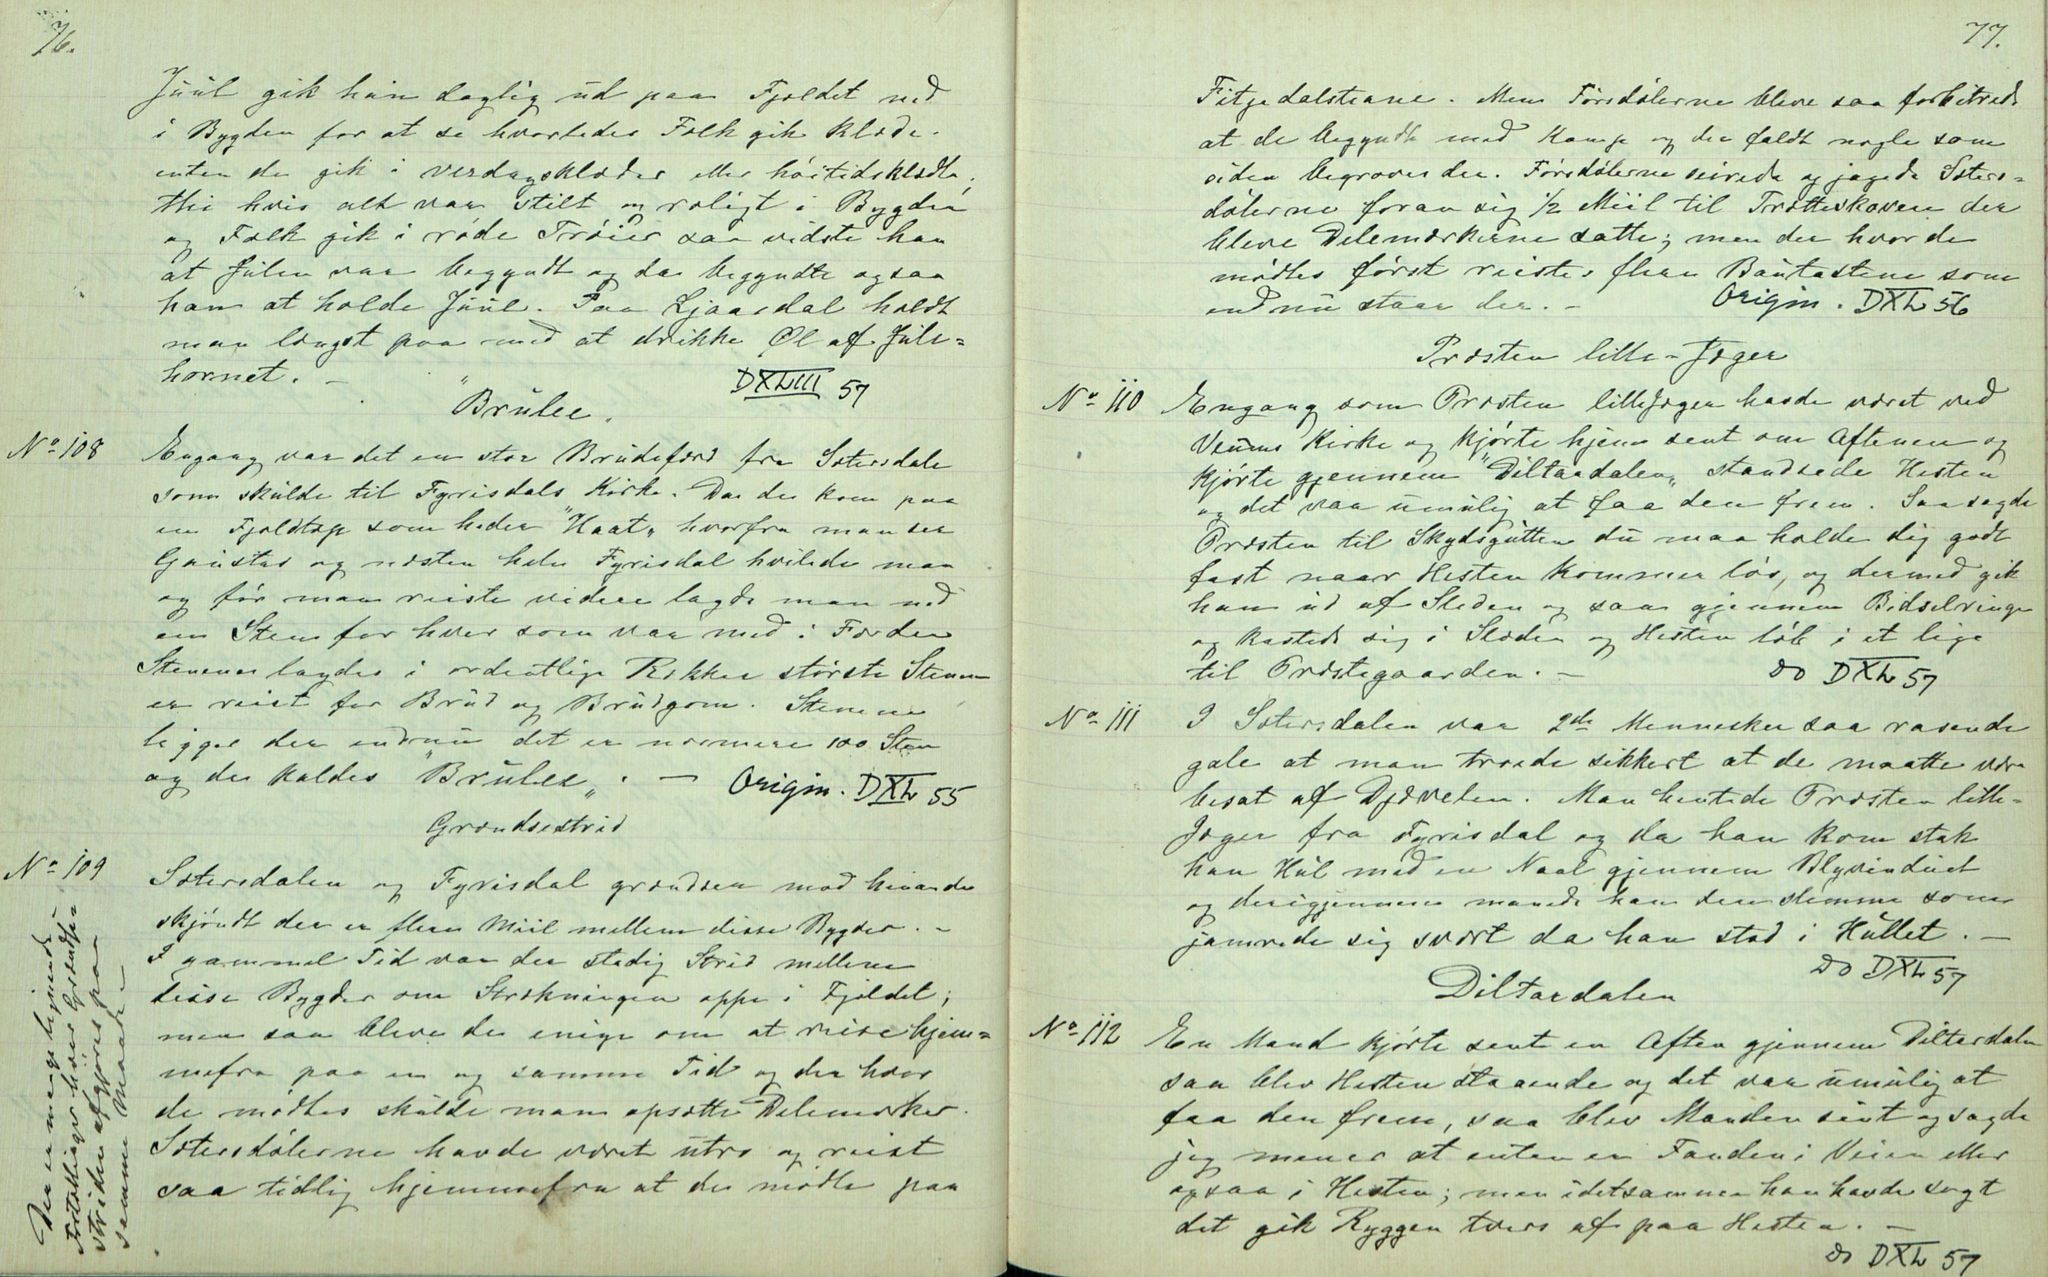 76.
Juul gik han daglig ud paa Fjeldet ned
i Bygden for at se hvorledes Folk gik klædt.
enten de gik i verdagsklæder eller høitidsklædte,
thi hvis alt var stilt og roligt i Bygden
og Folk gik i røde Trøier saa vidste han
at Julen var begyndt og da begyndte ogsaa
han at holde Juul. Paa Ljaasdal holdt
man længst paa med at drikke Øl af Jule=
hornet. —
DXLIII 57
"Brulee.
No 108
Engang var det en stor Brudefærd fra Sætersdale
som skulde til Fyrisdals Kirke. Da de kom paa
en Fjeldtop som heder "Haat„ hvorfra man ser
Gausta og næsten hele Fyrisdal hvilede man
og før man reiste videre lagde man ned
en Sten for hver som var med i Færden
Stenene lagdes i ordentlige Rækker største Stenen
er reist for Brud og Brudgom. Stenene
ligger der endnu det er nærmere 100 Sten
og de kaldes "Brulee„. — Origin. DXL 55
Grændsestrid
No 109
Sætersdalen og Fyrisdal grændser mod hinanden
skjøndt der er flere Miil mellem disse Bygder. –
I gammel Tid var der stadig Strid mellem
disse Bygder om Strækningen oppe i Fjeldet;
men saa bleve de enige om at reise hjem=
mefra paa en og samme Tid og der hvor
de mødtes skulde man opsætte Delemærker.
Sætersdølerne havde været utro og reist
saa tidlig hjemmefra at de mødte paa
Der er mange lignende
Fortællinger hvor Grændse
striden afgjøres paa
samme Maade –
77.
Fitjedalsteane. Men Førsdølerne bleve saa forbitrede
at de begyndte med Kamp og der faldt nogle som
siden begroves der. Førsdølerne seirede og jagede Sæters=
dølerne foran sig 1/2 Miil til Trætteskoven der
bleve Delemærkerne satte; men der hvor de
mødtes først reistes flere Bautastene som
endnu staar der. –
Origin. DXL 56
Præsten lille-Jæger
No 110
Engang som Præsten lilleJæger havde været ved
Veums Kirke og kjørte hjem sent om Aftenen og
kjørte gjennem "Diltardalen„ standsede Hesten
og det var umulig at faa den frem. Saa sagde
Præsten til Skydsgutten du maa holde dig godt
fast naar Hesten kommer løs, og dermed gik
han ud af Sleden og saa gjennem Bidselringen
og kastede sig i Slæden og Hesten løb i et lige
til Præstegaarden. —
do DXL 57
No 111
I Sætersdalen var 2de Mennesker saa rasende
gale at man troede sikkert at de maatte være
besat af Djævelen. Man hentede Præsten lille=
Jæger fra Fyrisdal og da han kom stak
han Hul med en Naal gjennem Blyvinduet
og derigjennem manede han den slemme som
jamrede sig svært da han stod i Hullet. —
do DXL 57
Diltardalen
No 112
En Mand kjørte sent en Aften gjennem Diltardalen
saa blev Hesten staaende og det var umulig at
faa den frem, saa blev Manden sint og sagde
jeg mener at enten er Fanden i Veien eller
ogsaa i Hesten; men idetsamme han havde sagt
det gik Ryggen tvers af paa Hesten. —
do DXL 57